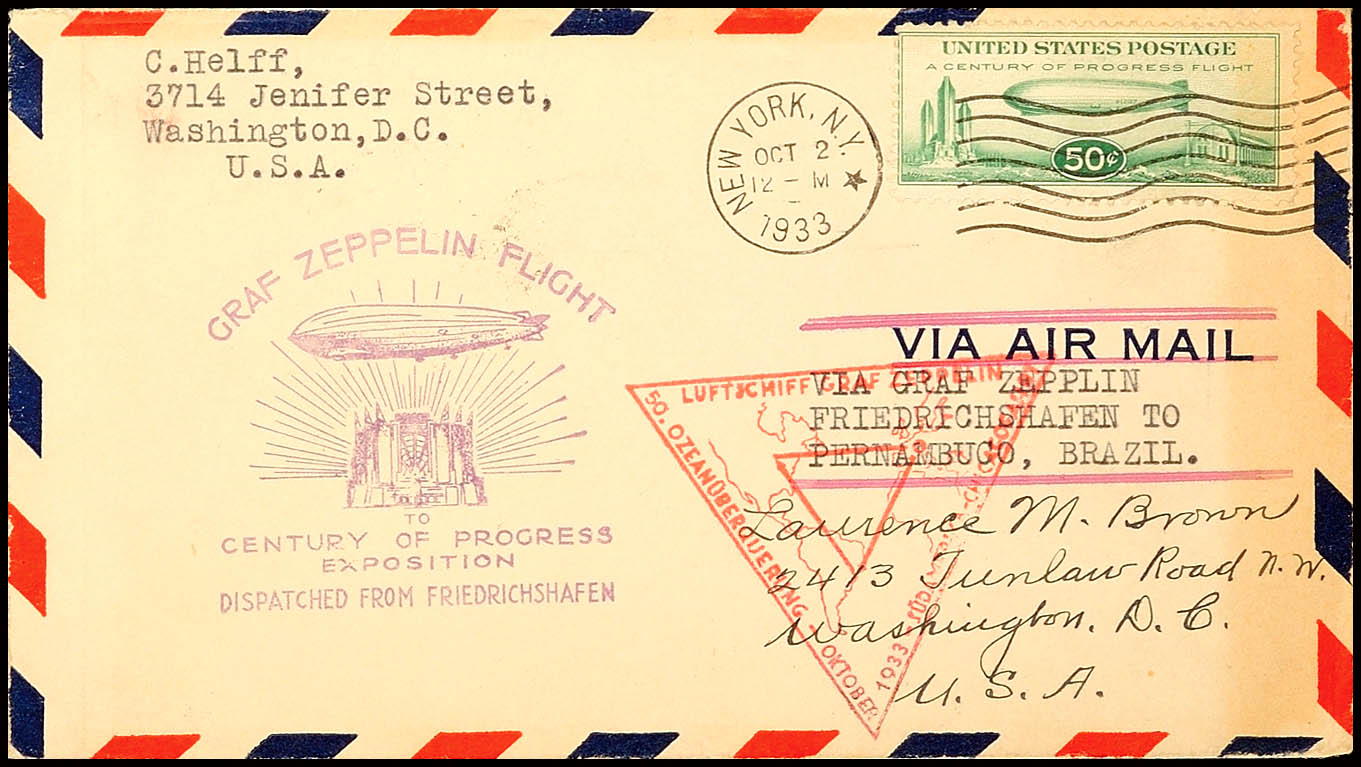 C.Helff,
3714 Jenifer Street,
Washington,D.C.
U.S.A.
UNITED STATES POSTAGE
A CENTURY OF PROGRESS FLIGHT
50¢
NEW YORK, N.Y.
OCT 2
12 - M
1933
GRAF ZEPPELIN FLIGHT
TO
CENTURY OF PROGRESS
EXPOSITION
DISPATCHED FROM FRIEDRICHSHAFEN
VIA AIR MAIL
VIA GRAF ZEPPLIN
FRIEDRICHSHAFEN TO
PERNAMBUCO, BRAZIL.
LUFTSCHIFF GRAF ZEPPELIN
50. OZEANÜBERQUERUNG - OKTOBER
1933
Laurence M. Brown
2413 Tunlaw Road N.W.
Washington. D.C.
U.S.A.